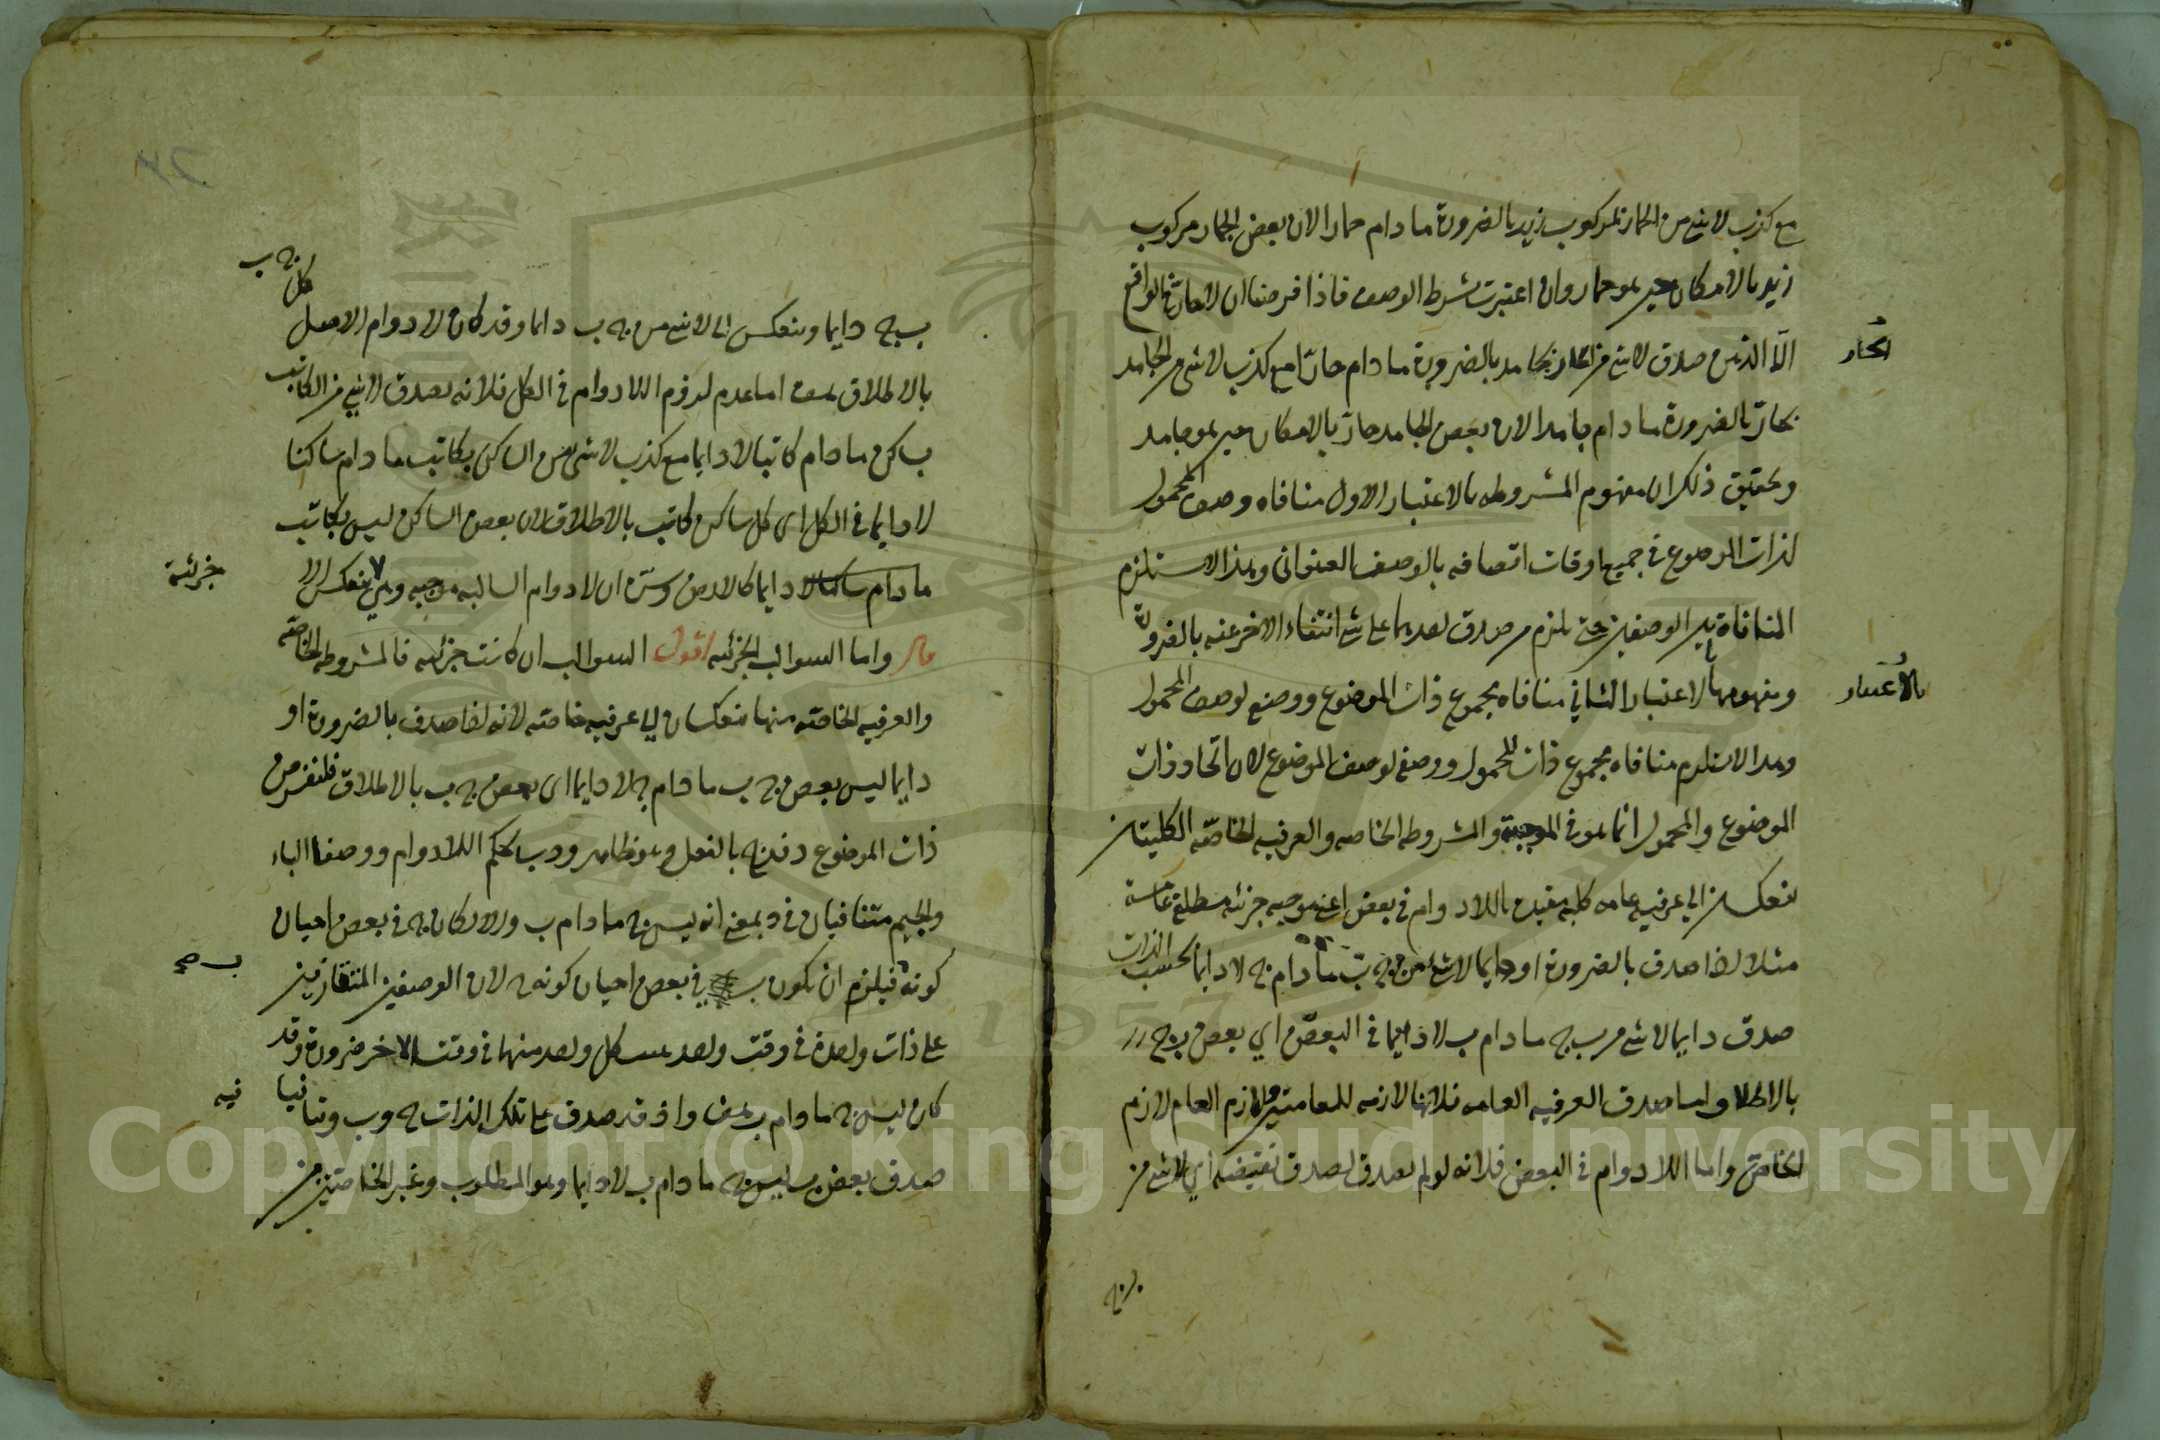 مع كذب لا شئ من الحمار بمركوب زيد بالضرورة ما دام حمارا لان بعض الحمار مركوب
زيد بالامكان حين هو حمار وان اعتبرت بشرط الوصف فاذا فرضنا ان لا حار في الواقع
الا الذهن صدق لا شئ من الحار بجامد بالضرورة ما دام حارا مع كذب لا شئ من الجامد
الحار
بحار بالضرورة ما دام جامدا لان بعض الجامد حار بالامكان حين هو جامد
وتحقيق ذلك ان مفهوم المشروطه بالاعتبار الاول منافاه وصف المحمول
لذات الموضوع في جميع اوقات اتصافه بالوصف العنوانى وهذا لا يستلزم
المنافاة بين الوصفين حتى يلزم من صدق احدهما على شئ انتفاء الاخر عنه بالضرورة
ومفهومها بالاعتبار الثاني منافاه مجموع ذات الموضوع ووصفه لوصف المحمول
بالاعتبار
وهذا لا يستلزم منافاه مجموع ذات المحمول ووصفه لوصف الموضوع لان اتحاد ذات
الموضوع والمحمول انما هو في الموجبة والمشروطه الخاصه والعرفيه الخاصه الكليتان
تنعكسان الي عرفيه عامه كليه مقيده باللادوام في بعض اعني موجبه جزئيه مطلقة عامة
مثلا اذا صدق بالضرورة او دايما لا شئ من ج ب ما دام ج لا دايما بحسب الذات
صدق دايما لا شئ من ب ج ما دام ب لا دايما في البعض اي بعض ب ج
بالاطلاق اما صدق العرفيه العامه فلانها لازمه للعامتين ولازم العام لازم
الخاص واما اللادوام في البعض فلانه لو لم يصدق لصدق نقيضه اي لا شئ من
ب ج دايما وينعكس الى لا شئ من ج ب دايما وقد كان لا دوام الاصل
كل ج ب
بالاطلاق هف اما عدم لزوم اللادوام في الكل فلانه يصدق لا شئ من الكاتب
بساكن ما دام كاتبا لا دايما مع كذب لا شئ من الساكن بكاتب ما دام ساكنا
لا دايما في الكل اى كل ساكن كاتب بالاطلاق لان بعض الساكن ليس بكاتب
ما دام ساكنا لا دايما كالارض وسره ان لا دوام السالبه موجبه وهي لا تنعكس الا
جزئية
قال واما السوالب الجزئيه اقول السوالب ان كانت جزئيه فالمشروطه الخاصه
والعرفيه الخاصه منها تنعكسان الي عرفيه خاصه لانه اذا صدق بالضرورة او
دايما ليس بعض ج ب ما دام ج لا دايما اى بعض ج ب بالاطلاق فلنفرض
ذات الموضوع د فد ج بالفعل وهو ظاهر ود ب بحكم اللادوام ووصفا الباء
والجيم متنافيان في د بمعنى انه ليس ج ما دام ب والا لكان ج في بعض احيان
كونه ب فيلزم ان يكون ب في بعض احيان كونه ج لان الوصفين المتقارنين
ب صح
على ذات واحدة في وقت واحد يثبت كل واحد منهما في وقت الاخر ضرورة وقد
كان ليس ج ما دام ب هف واذ قد صدق على تلك الذات ج وب وتنافيا
فيه
صدق بعض ب ليس ج ما دام ب لا دايما وهو المطلوب وغير الخاصتين من
ب ج